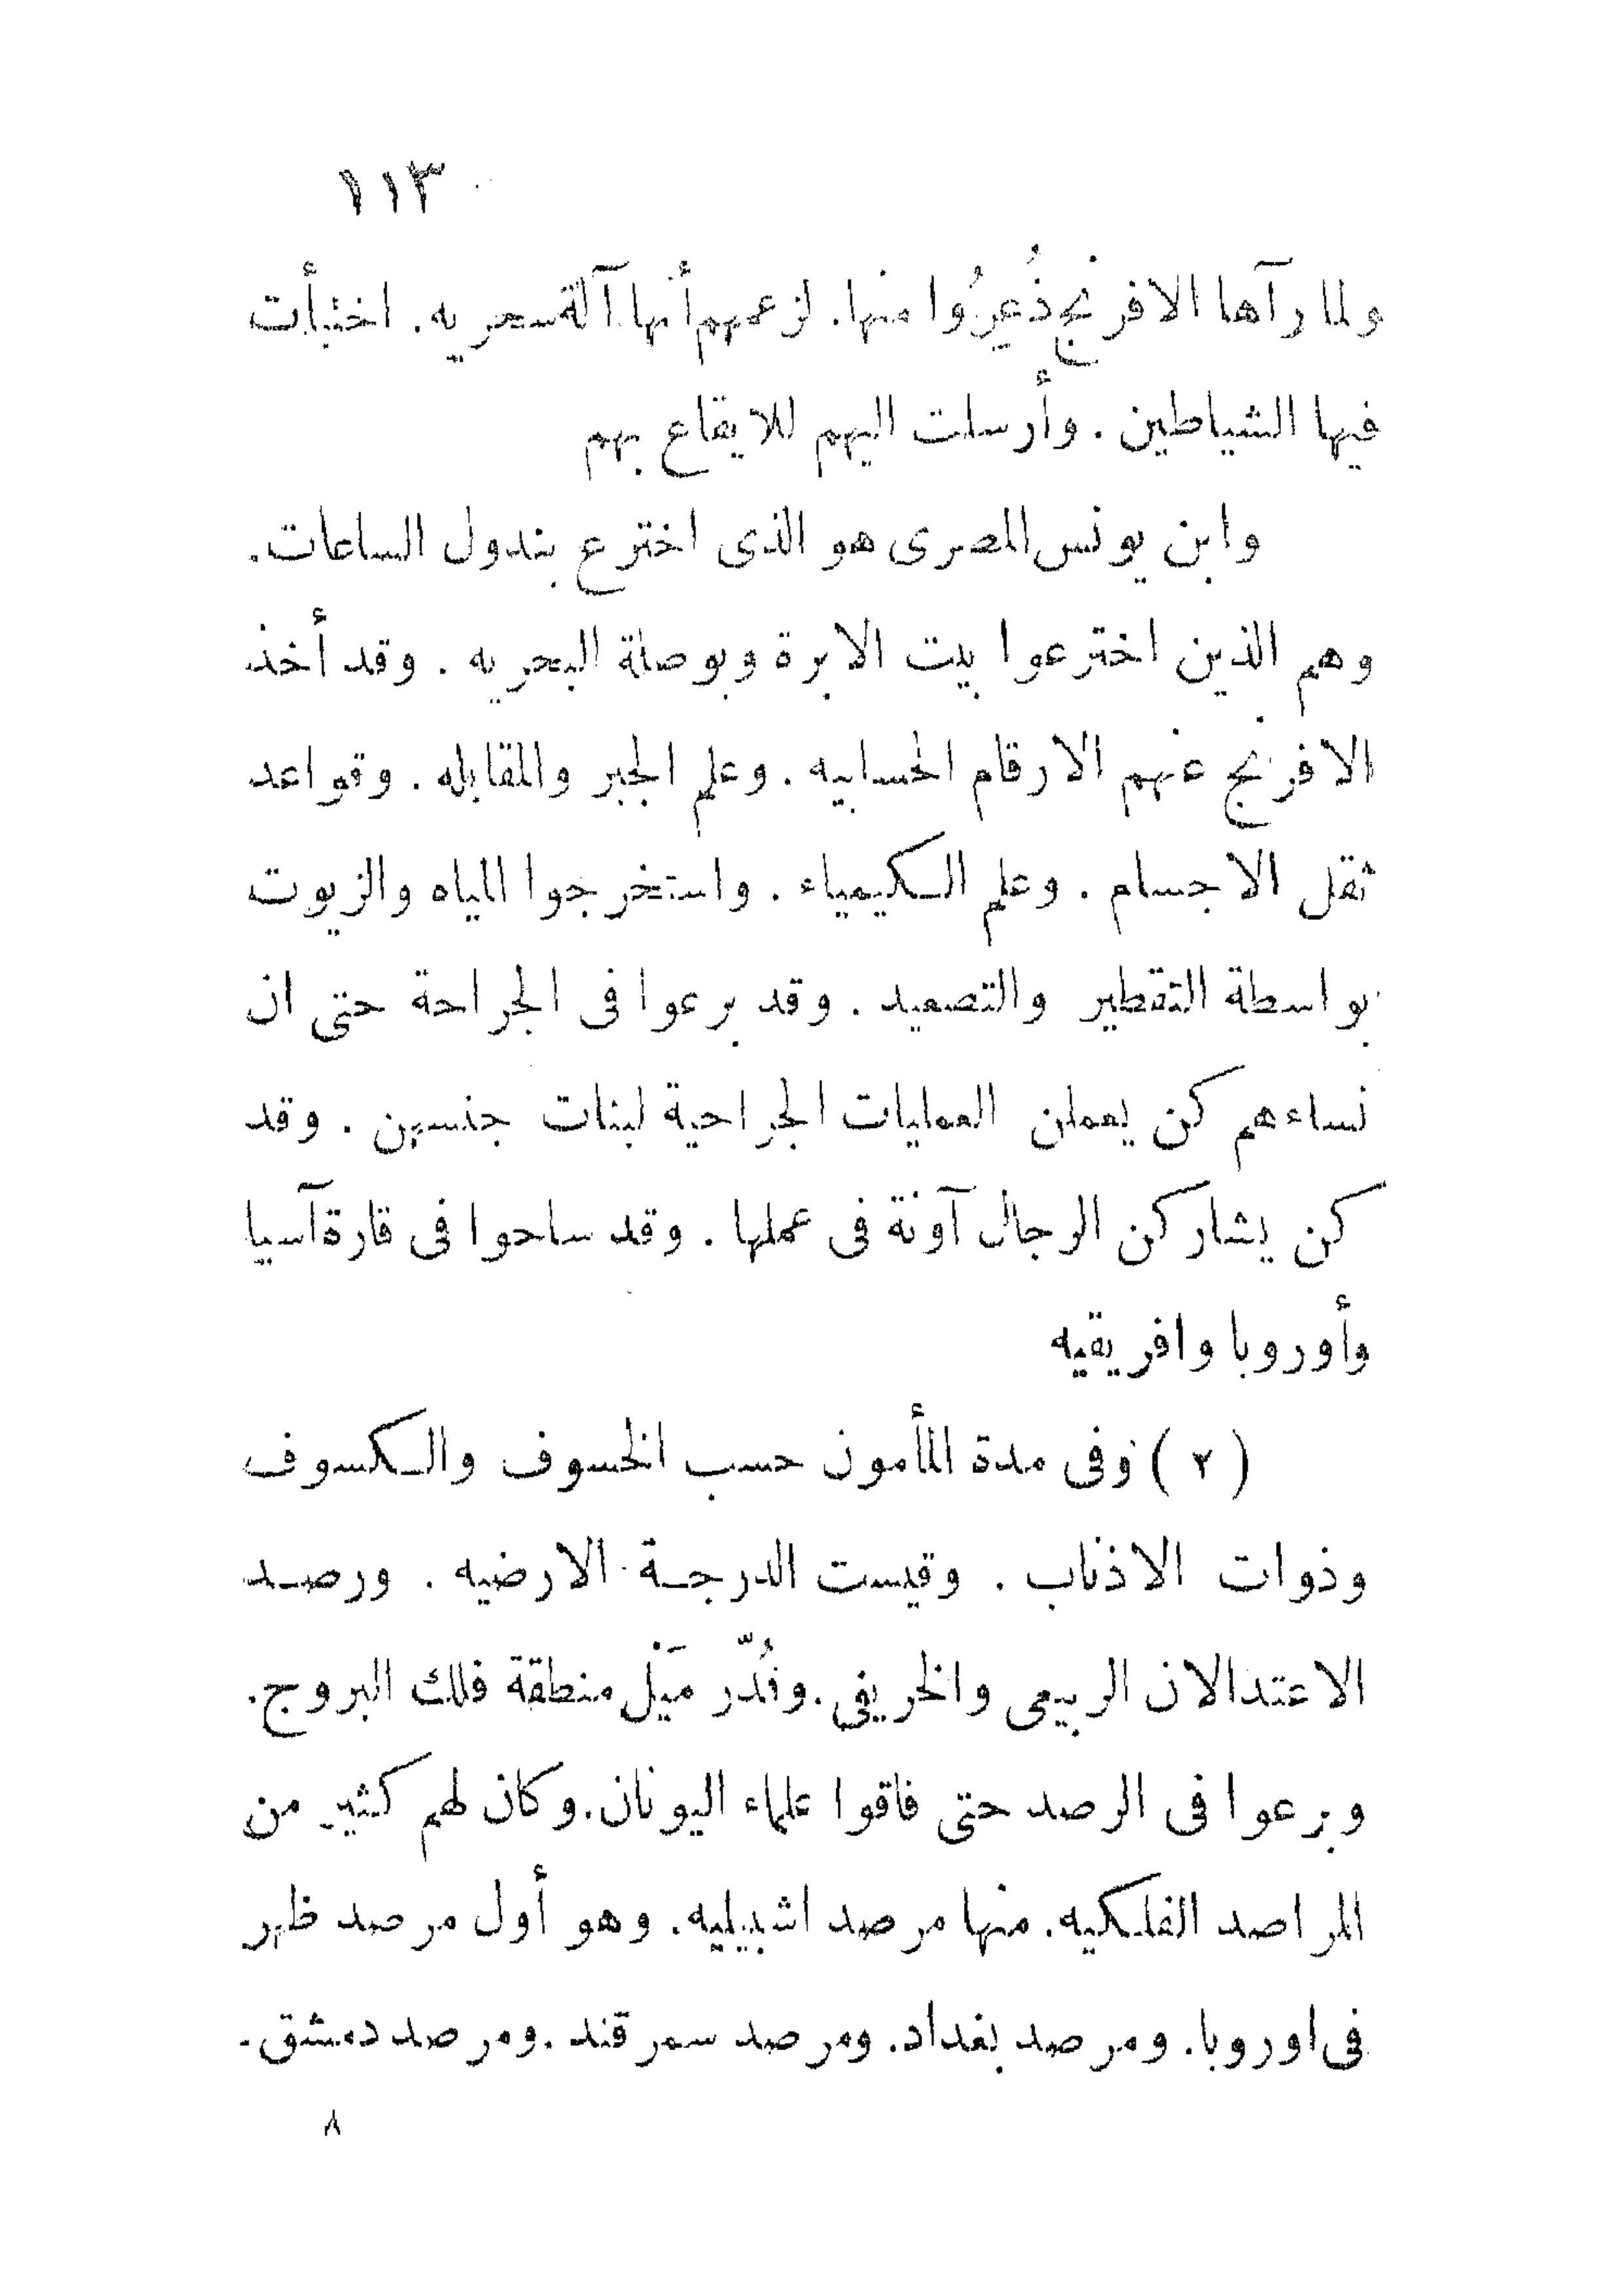 ١١٣
ولما رآها الافرنج ذُعِرُوا منها. لزعمهم أنها آلة سحريه. اختبأت
فيها الشياطين. وأرسلت اليهم للايقاع بهم
وابن يونس المصرى هو الذى اخترع بندول الساعات.
وهم الذين اخترعوا بيت الابرة وبوصلة البحريه. وقد أخذ
الافرنج عنهم الارقام الحسابيه. وعلم الجبر والمقابله. وقواعد
ثقل الاجسام. وعلم الكيمياء. واستخرجوا المياه والزيوت
بواسطة التقطير والتصعيد. وقد برعوا فى الجراحة حتى ان
نساءهم كن يعملن العمليات الجراحية لبنات جنسهن. وقد
كن يشاركن الرجال آونة فى عملها. وقد ساحوا فى قارة آسيا
وأوروبا وافريقيه
(٢) وفى مدة المأمون حسب الخسوف والكسوف
وذوات الاذناب. وقيست الدرجة الارضيه. ورصد
الاعتدالان الربيعى والخريفى. وقُدّر مَيْل منطقة فلك البروج.
وبرعوا فى الرصد حتى فاقوا علماء اليونان. وكان لهم كثير من
المراصد الفلكيه. منها مرصد اشبيليه. وهو أول مرصد ظهر
فى اوروبا. ومرصد بغداد. ومرصد سمرقند. ومرصد دمشق.
٨